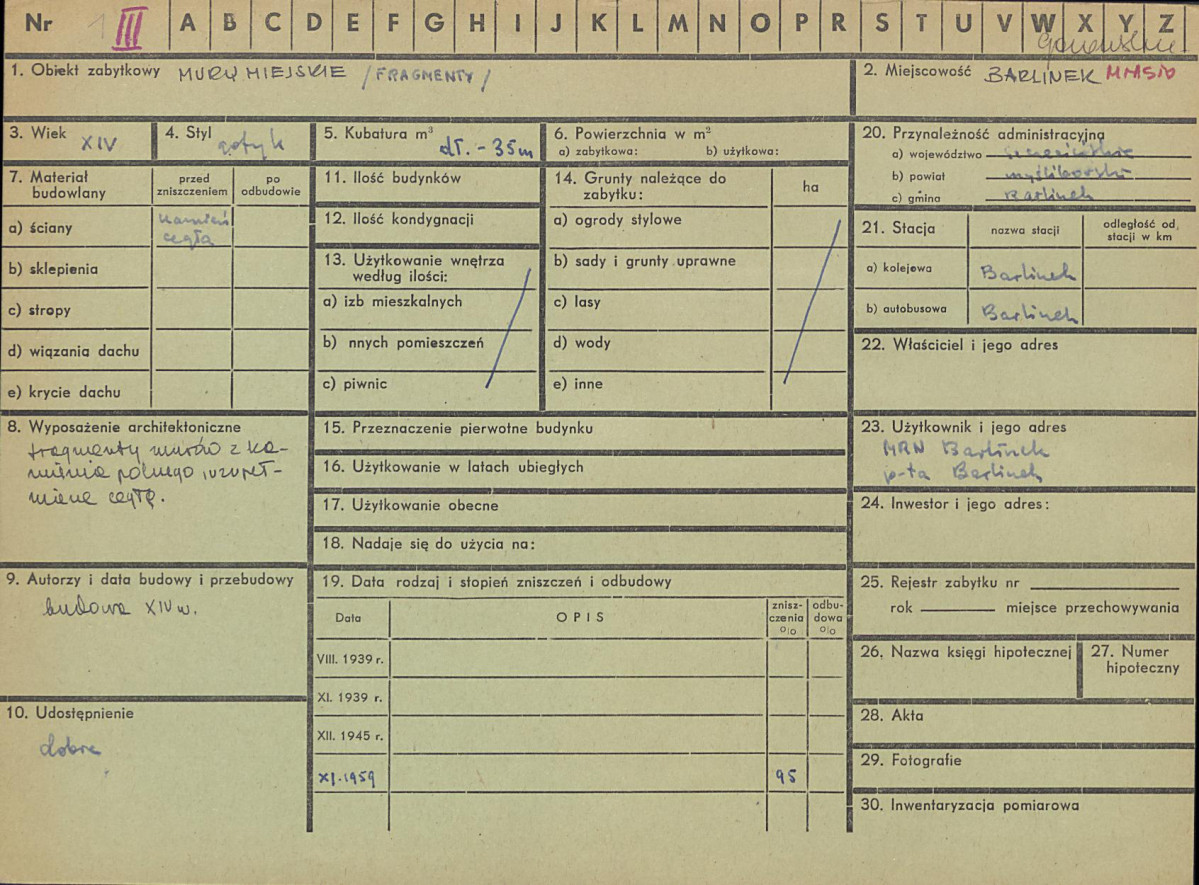 Nr 1 III A B C D E F G H I J K L M N O P R S T U V W X Y Z
1. Obiekt zabytkowy MURY MIEJSKIE /FRAGMENTY/
2. Miejscowość BARLINEK
3. Wiek XIV
4. Styl gotyk
5. Kubatura m³ dł. - 35m
6. Powierzchnia w m²
a) zabytkowa: b) użytkowa:
7. Materiał budowlany
przed zniszczeniem
po odbudowie
a) ściany kamień
cegła
b) sklepienia
c) stropy
d) wiązania dachu
e) krycie dachu
8. Wyposażenie architektoniczne
fragmenty murów z ka-
mienia polnego, uzupeł-
niene cegłą.
9. Autorzy i data budowy i przebudowy
budowa XIV w.
10. Udostępnienie
dobre
11. Ilość budynków
12. Ilość kondygnacji
13. Użytkowanie wnętrza
według ilości:
a) izb mieszkalnych
b) nnych pomieszczeń
c) piwnic
14. Grunty należące do
zabytku:
ha
a) ogrody stylowe
b) sady i grunty uprawne
c) lasy
d) wody
e) inne
15. Przeznaczenie pierwotne budynku
16. Użytkowanie w latach ubiegłych
17. Użytkowanie obecne
18. Nadaje się do użycia na:
19. Data rodzaj i stopień zniszczeń i odbudowy
Data
OPIS
znisz-
czenia
%
odbu-
dowa
%
VIII. 1939 r.
XI. 1939 r.
XII. 1945 r.
XI.1959 95
20. Przynależność administracyjna
a) województwo szczecińskie
b) powiat myśliborski
c) gmina Barlinek
21. Stacja
nazwa stacji
odległość od
stacji w km
a) kolejowa Barlinek
b) autobusowa Barlinek
22. Właściciel i jego adres
23. Użytkownik i jego adres
MRN Barlinek
p-ta Barlinek
24. Inwestor i jego adres:
25. Rejestr zabytku nr
rok miejsce przechowywania
26. Nazwa księgi hipotecznej
27. Numer
hipoteczny
28. Akta
29. Fotografie
30. Inwentaryzacja pomiarowa